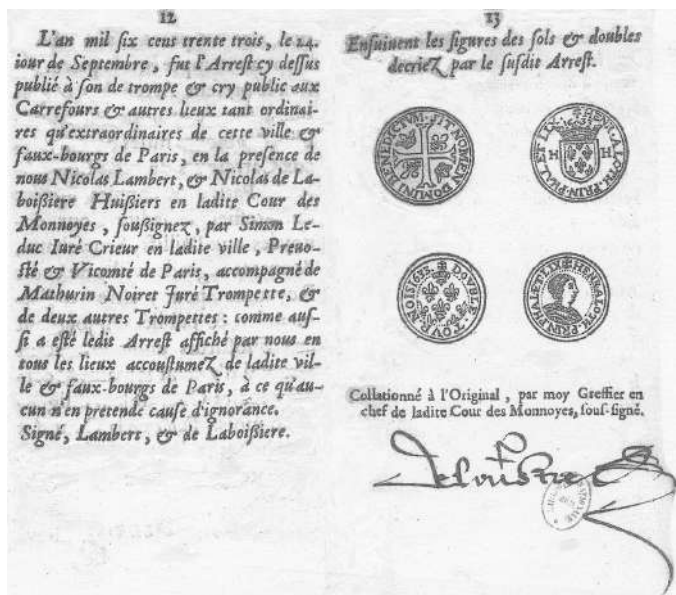 12
L'an mil six cent trente trois, le 24.
iour de Septembre, fut l'Arrest cy dessus
publié à son de trompe & cry public aux
Carrefours & autres lieux tant ordinai-
res qu'extraordinaires de cette ville &
faux-bourgs de Paris, en la presence de
nous Nicolas Lambert, & Nicolas de La-
boißiere Huißiers en ladite Cour des
Monnoyes, soußignez, par Simon Le-
duc Iuré Crieur en ladite ville, Preuo-
sté & Vicomté de Paris, accompagné de
Mathurin Noiret Juré Trompette, &
de deux autres Trompettes : comme aus-
si a esté ledit Arrest affiché par nous en
tous les lieux accoustumez de ladite vil-
le & faux-bourgs de Paris, à ce qu'au-
cun n'en pretende cause d'ignorance.
Signé, Lambert, & de Laboißiere.
13
Ensuiuent les figures des sols & doubles
decriez par le susdit Arrest.
SIT NOMEN DOMINI BENEDICTVM
H H
DOVBLE TOVRNOIS 1633
Collationné à l'Original, par moy Greffier en
chef de ladite Cour des Monnoyes, sous-signé.